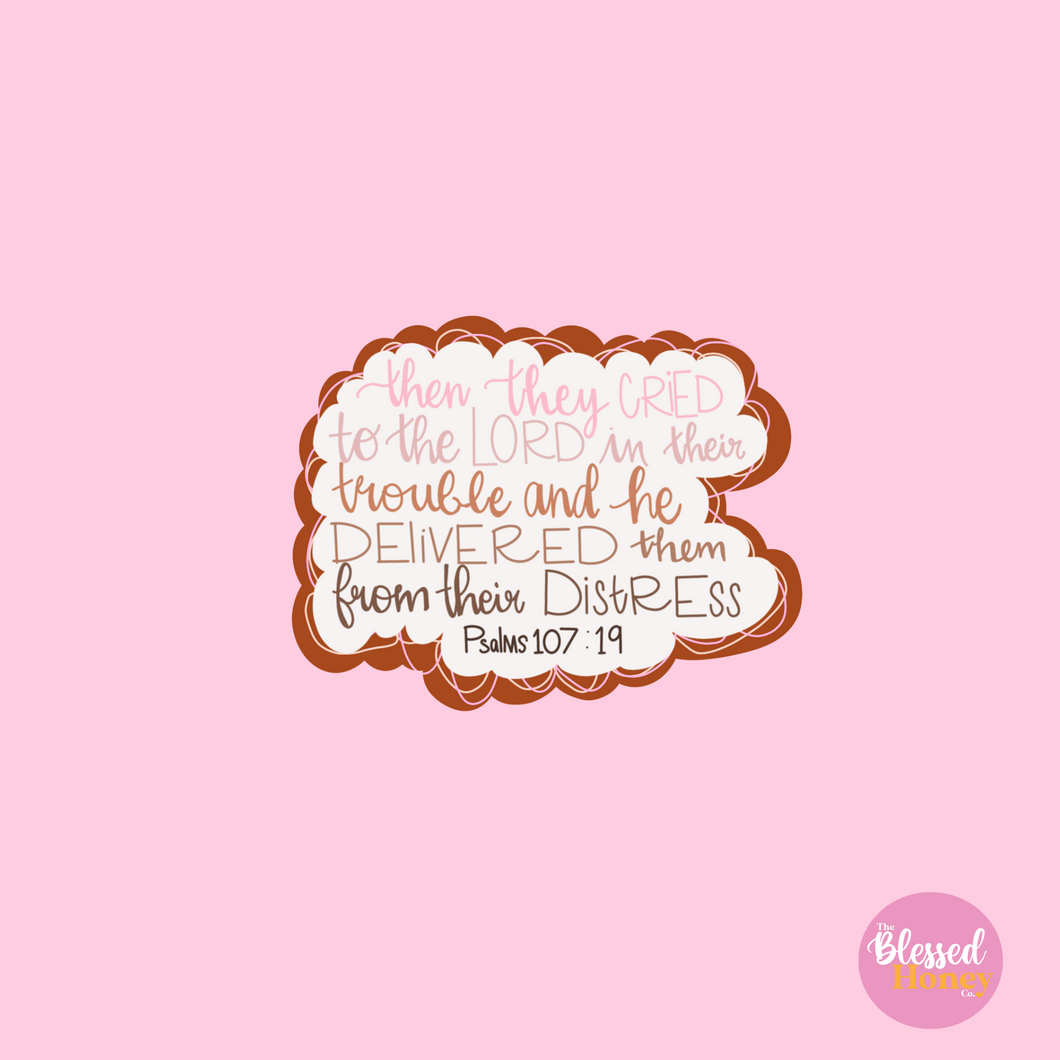 then they CRiED
to the LORD in their
trouble and he
DELiVERED them
from their DistRESS
Psalms 107:19
The
Blessed
Honey
Co.